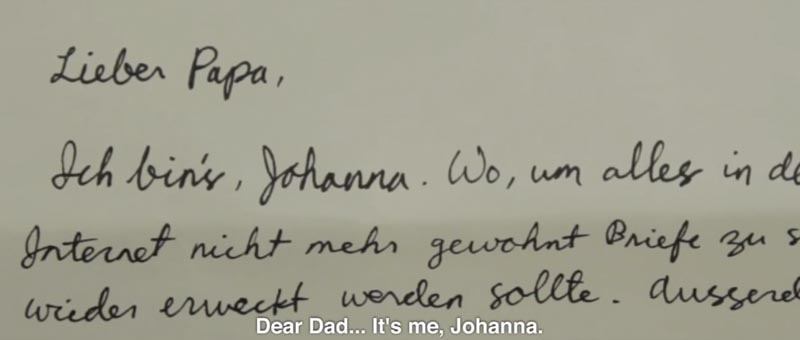 Lieber Papa,
Ich bin's, Johanna. Wo, um alles in
Internet nicht mehr gewohnt Briefe zu
wieder erweckt werden sollte.
Dear Dad... It's me, Johanna.